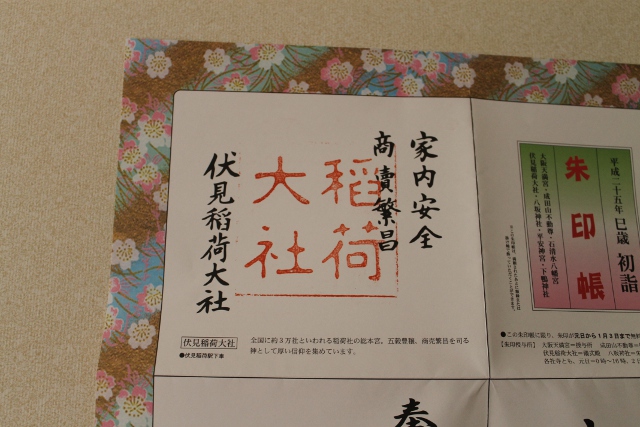 家内安全
商賣繁昌
稲荷
大社
伏見稲荷大社
伏見稲荷大社
●伏見稲荷駅下車
全国に約３万社といわれる稲荷社の総本宮。五穀豊穣、商売繁昌を司る
神として厚い信仰を集めています。
平成二十五年 巳歳 初詣
朱印帳
大阪天満宮・成田山不動尊・石清水八幡宮
伏見稲荷大社・八坂神社・平安神宮・下鴨神社
●この朱印帳に限り、朱印が元日から１月３日まで無料
【朱印授与所】 大阪天満宮＝授与所 成田山不動尊＝
伏見稲荷大社＝儀式殿 八坂神社＝
各社寺とも、元日＝0時〜16時、2
奉